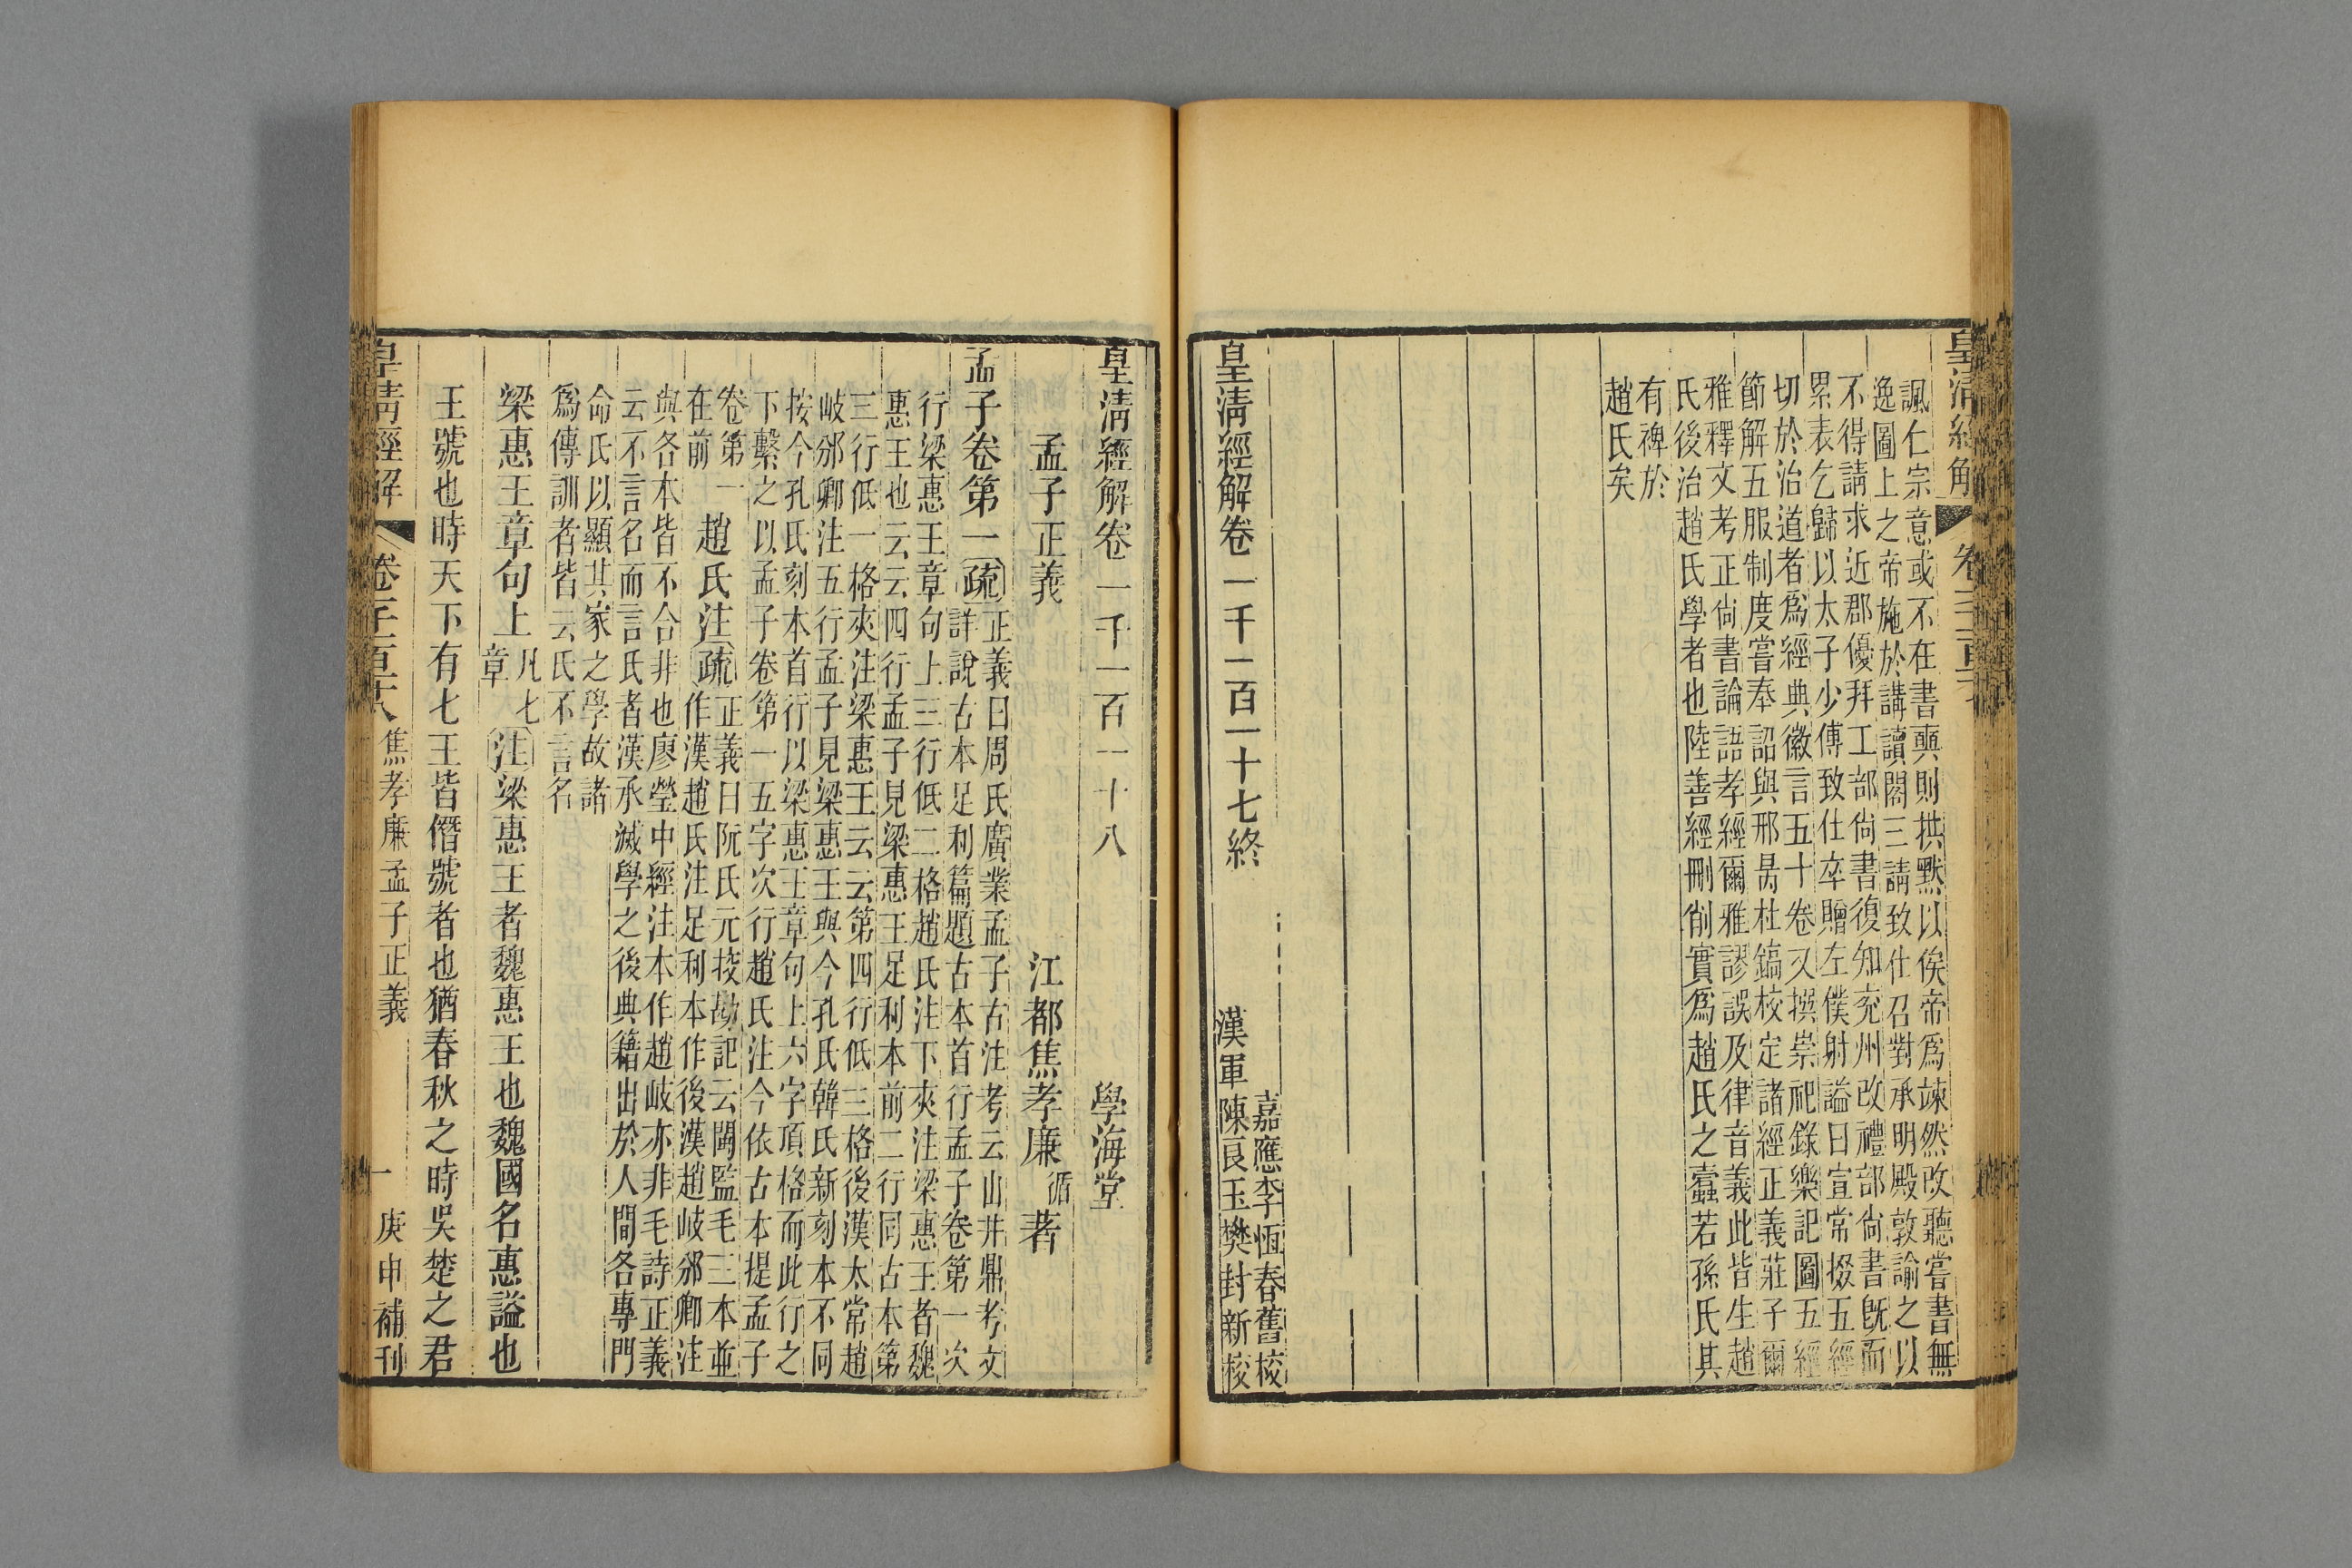 皇清經解
諷仁宗意或不在書輿則拱默以俟帝爲竦然改聽嘗書無
逸圖上之帝施於講讀閣三請致仕召對承明殿敦諭之以
不得請求近郡優拜工部尙書復知兖州改禮部尙書旣而
累表乞歸以太子少傅致仕卒贈左僕射謚曰宣常掇五經
切於治道者爲經典徽言五十卷又撰崇祀錄樂記圖五經
節解五服制度嘗奉詔與邢昺杜鎬校定諸經正義莊子爾
雅釋文考正尙書論語孝經爾雅謬誤及律音義此皆生趙
氏後治趙氏學者也陸善經刪削實爲趙氏之蠹若孫氏其
有裨於
趙氏矣
皇淸經解卷一千一百一十七終
嘉應李恆春舊校
漢軍陳良玉樊封新校
皇淸經解卷一千一百一十八
學海堂
孟子正義
江都焦孝廉循著
孟子卷第一疏
正義曰周氏廣業孟子古注考云山井鼎考文
詳說古本足利篇題古本首行孟子卷第一次
行梁惠王章句上三行低二格趙氏注下夾注梁惠王者魏
惠王也云云四行孟子見梁惠王足利本前二行同古本第
三行低一格夾注梁惠王云云第四行低三格後漢太常趙
岐邠卿注五行孟子見梁惠王與今孔氏韓氏新刻本不同
按今孔氏刻本首行以梁惠王章句上六字頂格而此行之
下繫之以孟子卷第一五字次行趙氏注今依古本提孟子
卷第一
在前
趙氏注疏
正義曰阮氏元挍勘記云閩監毛三本並
作漢趙氏注足利本作後漢趙岐邠卿注
與各本皆不合非也廖瑩中經注本作趙岐亦非毛詩正義
云不言名而言氏者漢承滅學之後典籍出於人間各專門
命氏以顯其家之學故諸
爲傳訓者皆云氏不言名
梁惠王章句上
凡七
章
注梁惠王者魏惠王也魏國名惠謚也
王號也時天下有七王皆僭號者也猶春秋之時吳楚之君
皇淸經解
卷一千一百十八
焦孝廉孟子正義
一
庚申補刊